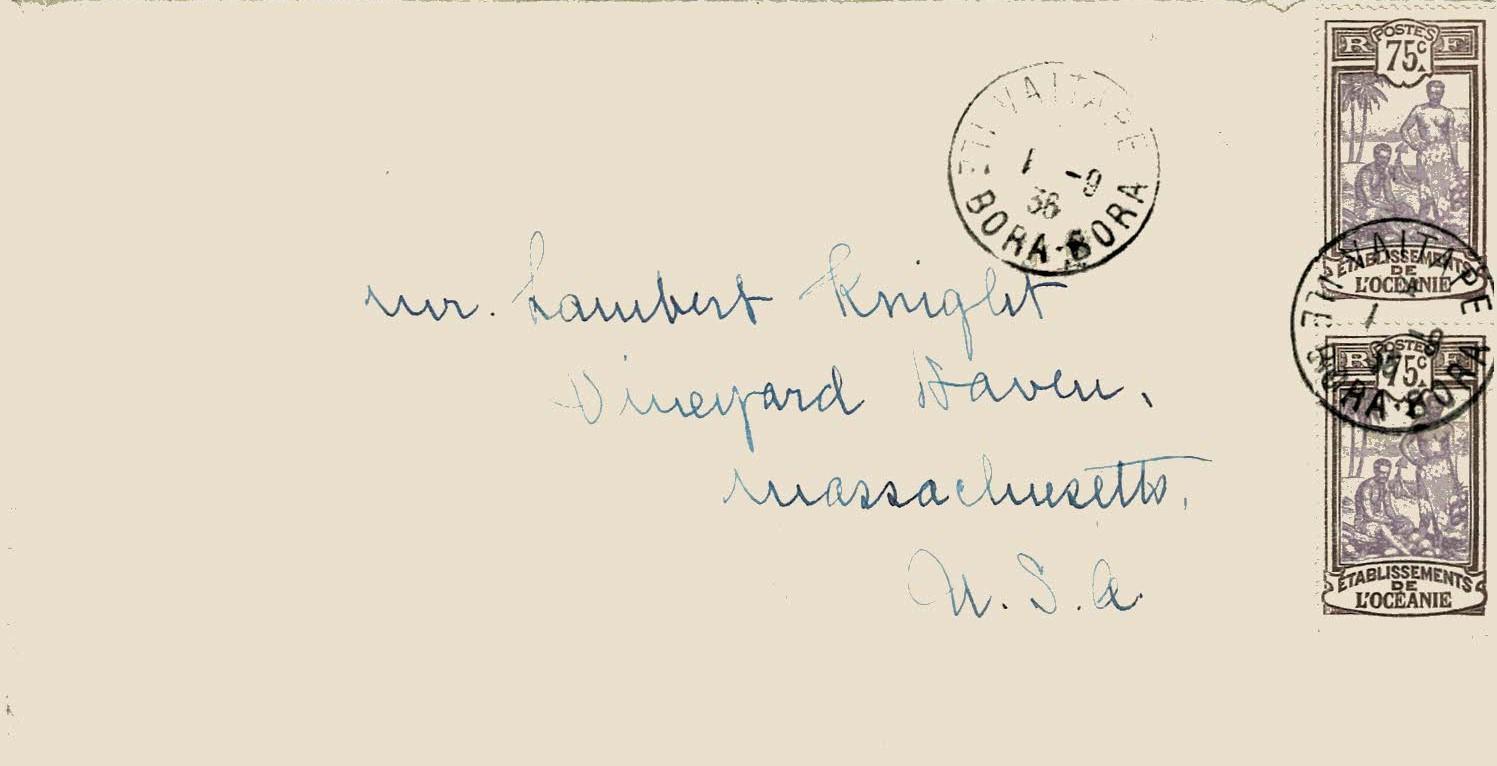 VAITAPE
1 -9
36
BORA-BORA
POSTES
R F
75c
ÉTABLISSEMENTS
DE
L'OCÉANIE
VAITAPE
1 -9
BORA-BORA
POSTES
R F
75c
ÉTABLISSEMENTS
DE
L'OCÉANIE
Mr. Lambert Knight
Vineyard Haven,
Massachusetts,
U.S.A.